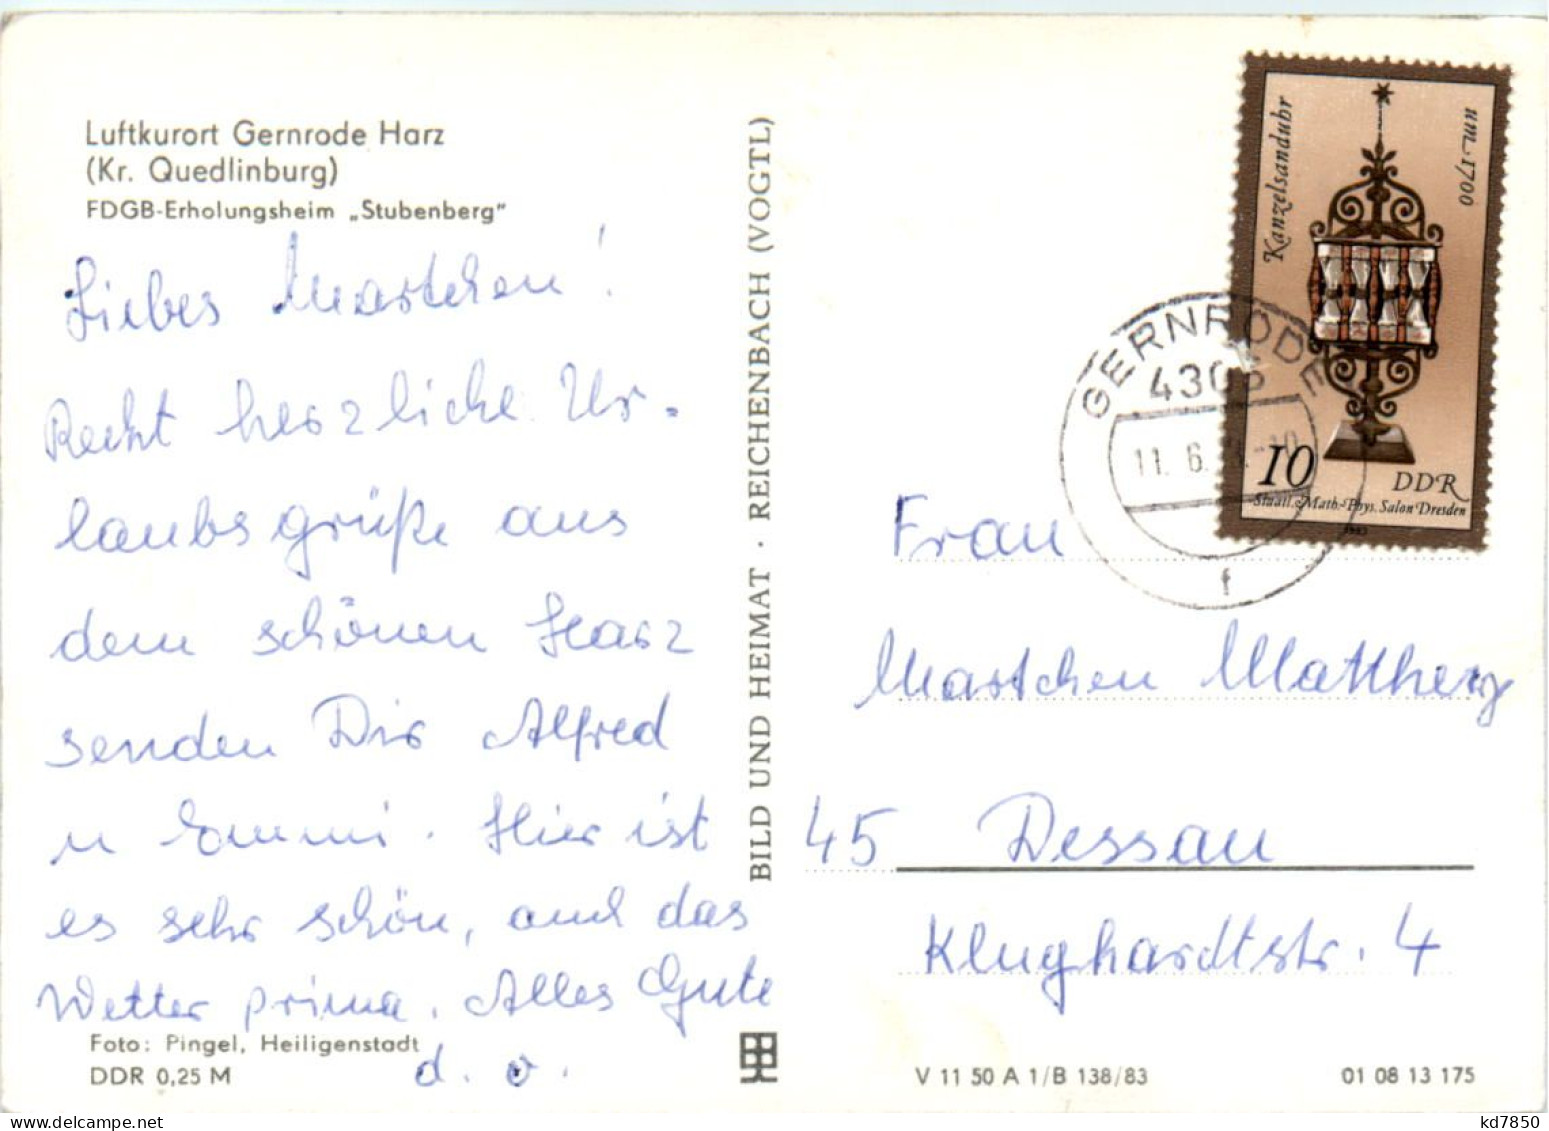 Luftkurort Gernrode Harz
(Kr. Quedlinburg)
FDGB-Erholungsheim „Stubenberg"
Liebes Martchen!
Recht herzliche Ur-
laubsgrüße aus
dem schönen Harz
senden Dir Alfred
u Emmi. Hier ist
es sehr schön, auch das
Wetter prima. Alles Gute
d. o.
Foto: Pingel, Heiligenstadt
DDR 0,25 M
BILD UND HEIMAT · REICHENBACH (VOGTL)
Kanzelsanduhr
um 1700
10
DDR
Staatl. Math.-Phys. Salon Dresden
1983
GERNRODE
11. 6.
f
Frau
Martchen Mattherg
45 Dessau
Klughardtstr. 4
V 11 50 A 1/B 138/83
01 08 13 175
kd7850